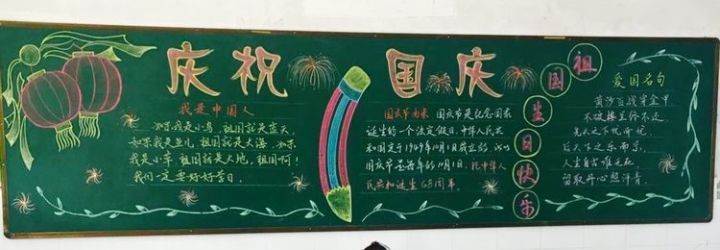 庆祝国庆
我是中国人
如果我是小鸟，祖国就是蓝天，
如果我是鱼儿，祖国就是大海，如果
我是小草，祖国就是大地，祖国啊！
我们一定要好好学习。
国庆节由来：国庆节是纪念国家
诞生的一个法定假日，中华人民共
和国定于1949年10月1日成立的，所以
国庆节是每年的10月1日，
民共和诞生68周年。
祖国生日快乐
爱国名句
黄沙百战穿金甲
不破楼兰终不还
先天下之忧而忧，
后天下之乐而乐。
人生自古谁无死
留取丹心照汗青。